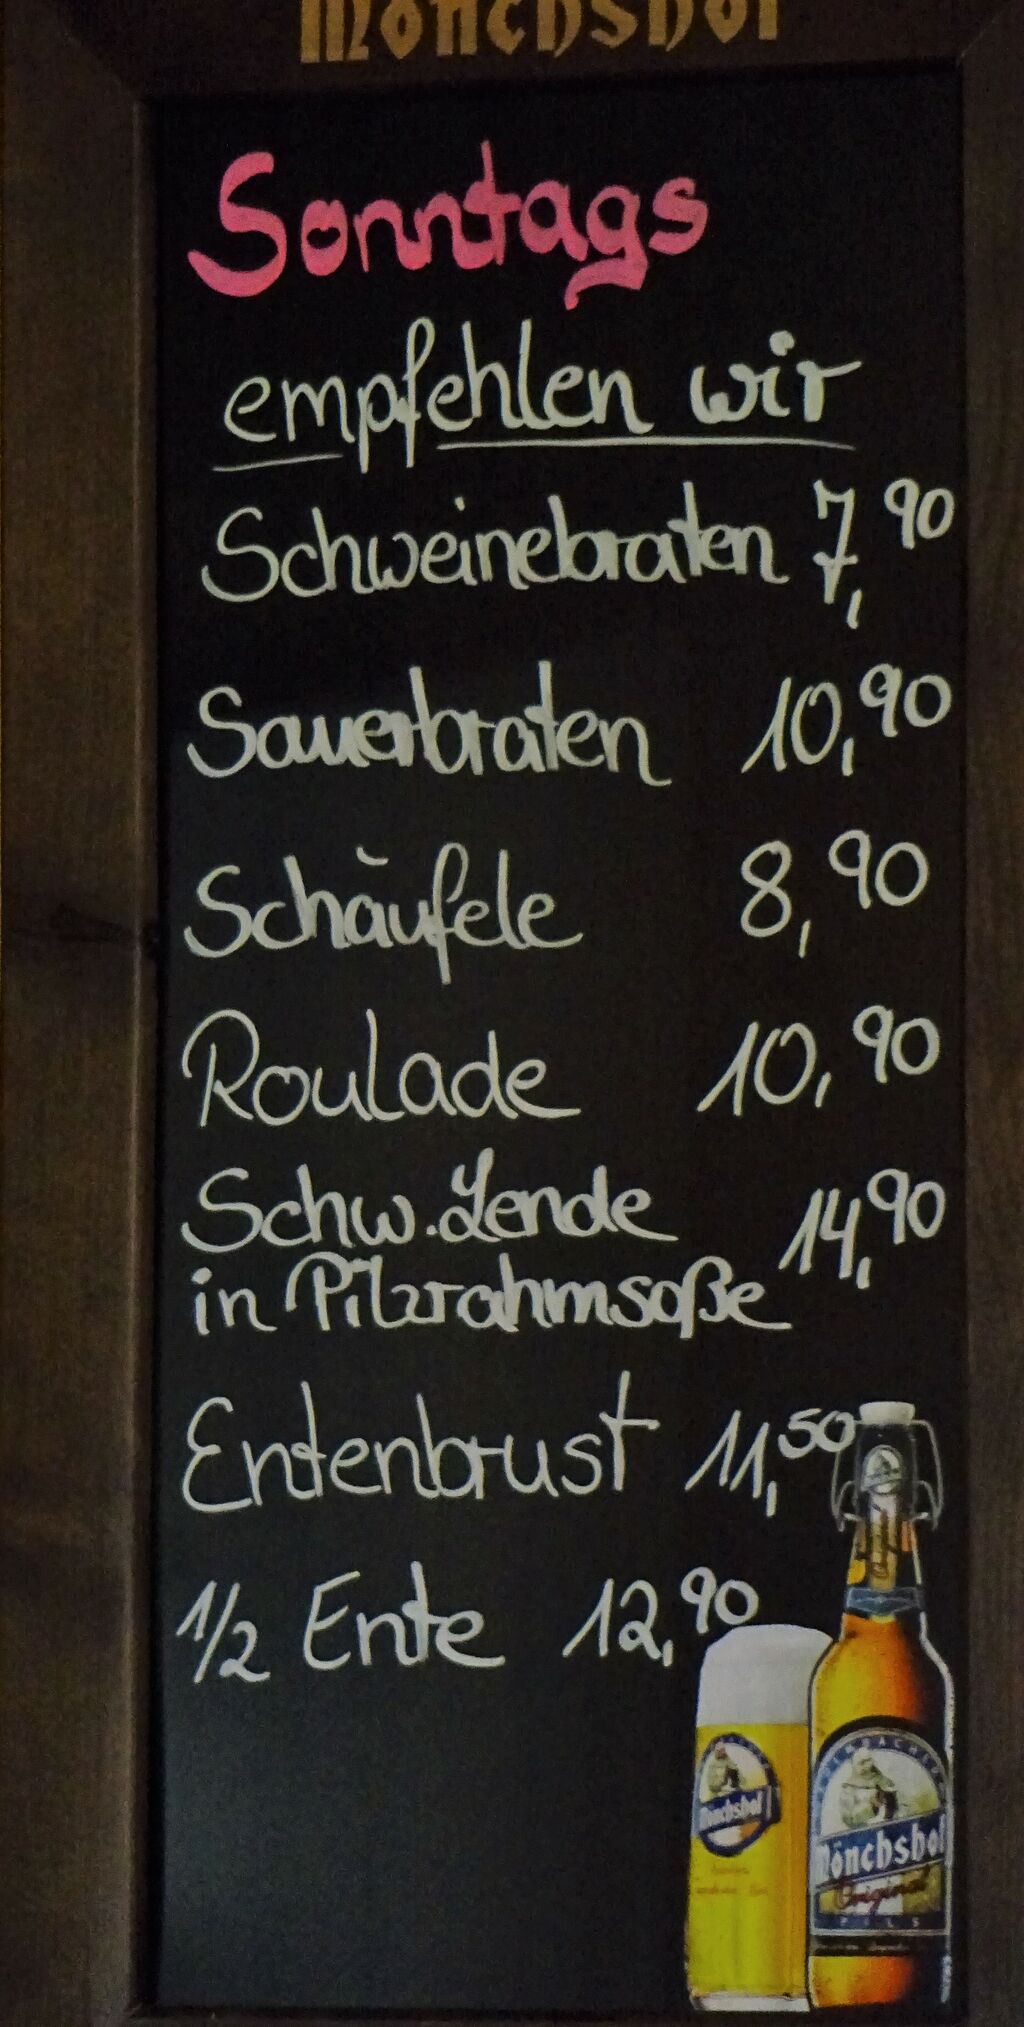 Mönchshof
Sonntags
empfehlen wir
Schweinebraten 7,90
Sauerbraten 10,90
Schäufele 8,90
Roulade 10,90
Schw. Lende 14,90
in Pilzrahmsoße
Entenbrust 11,50
1/2 Ente 12,90
Mönchshof
KULMBACHER
Mönchshof
Original
PILS